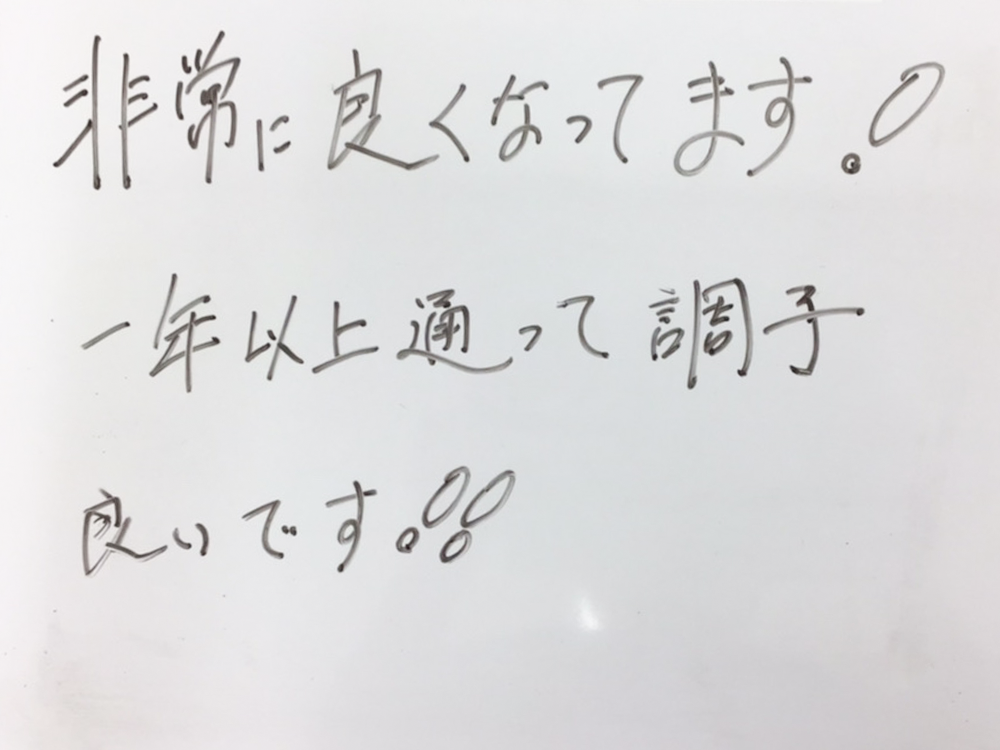 非常に良くなってます!
一年以上通って調子
良いです!!